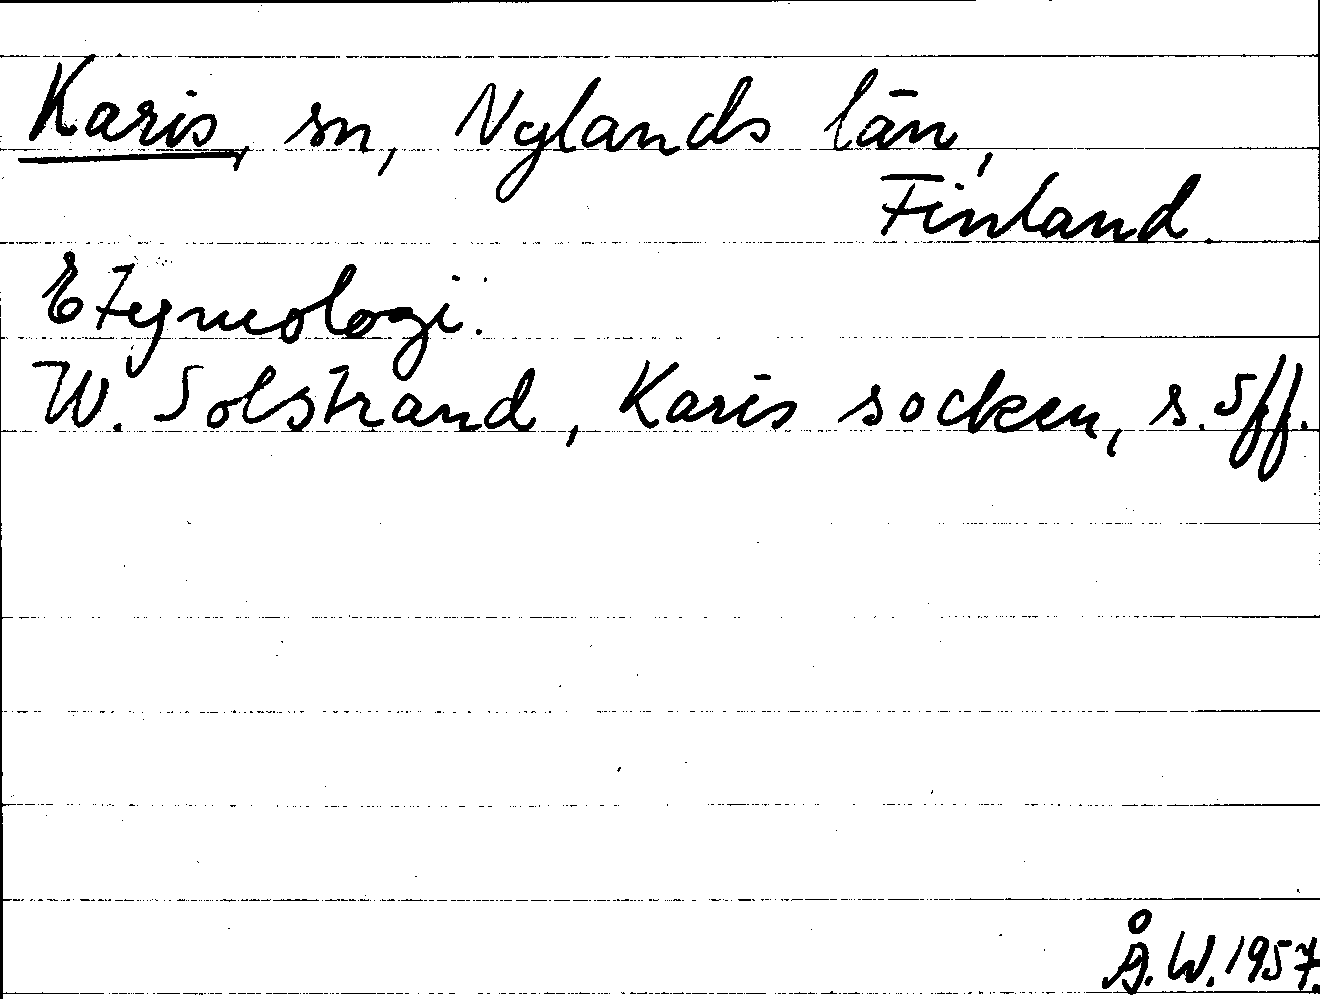 Karis, sn, Nylands län,
Finland.
Etymologi.
W. Solstrand, Karis socken, s. 5ff.
Å.W. 1957.